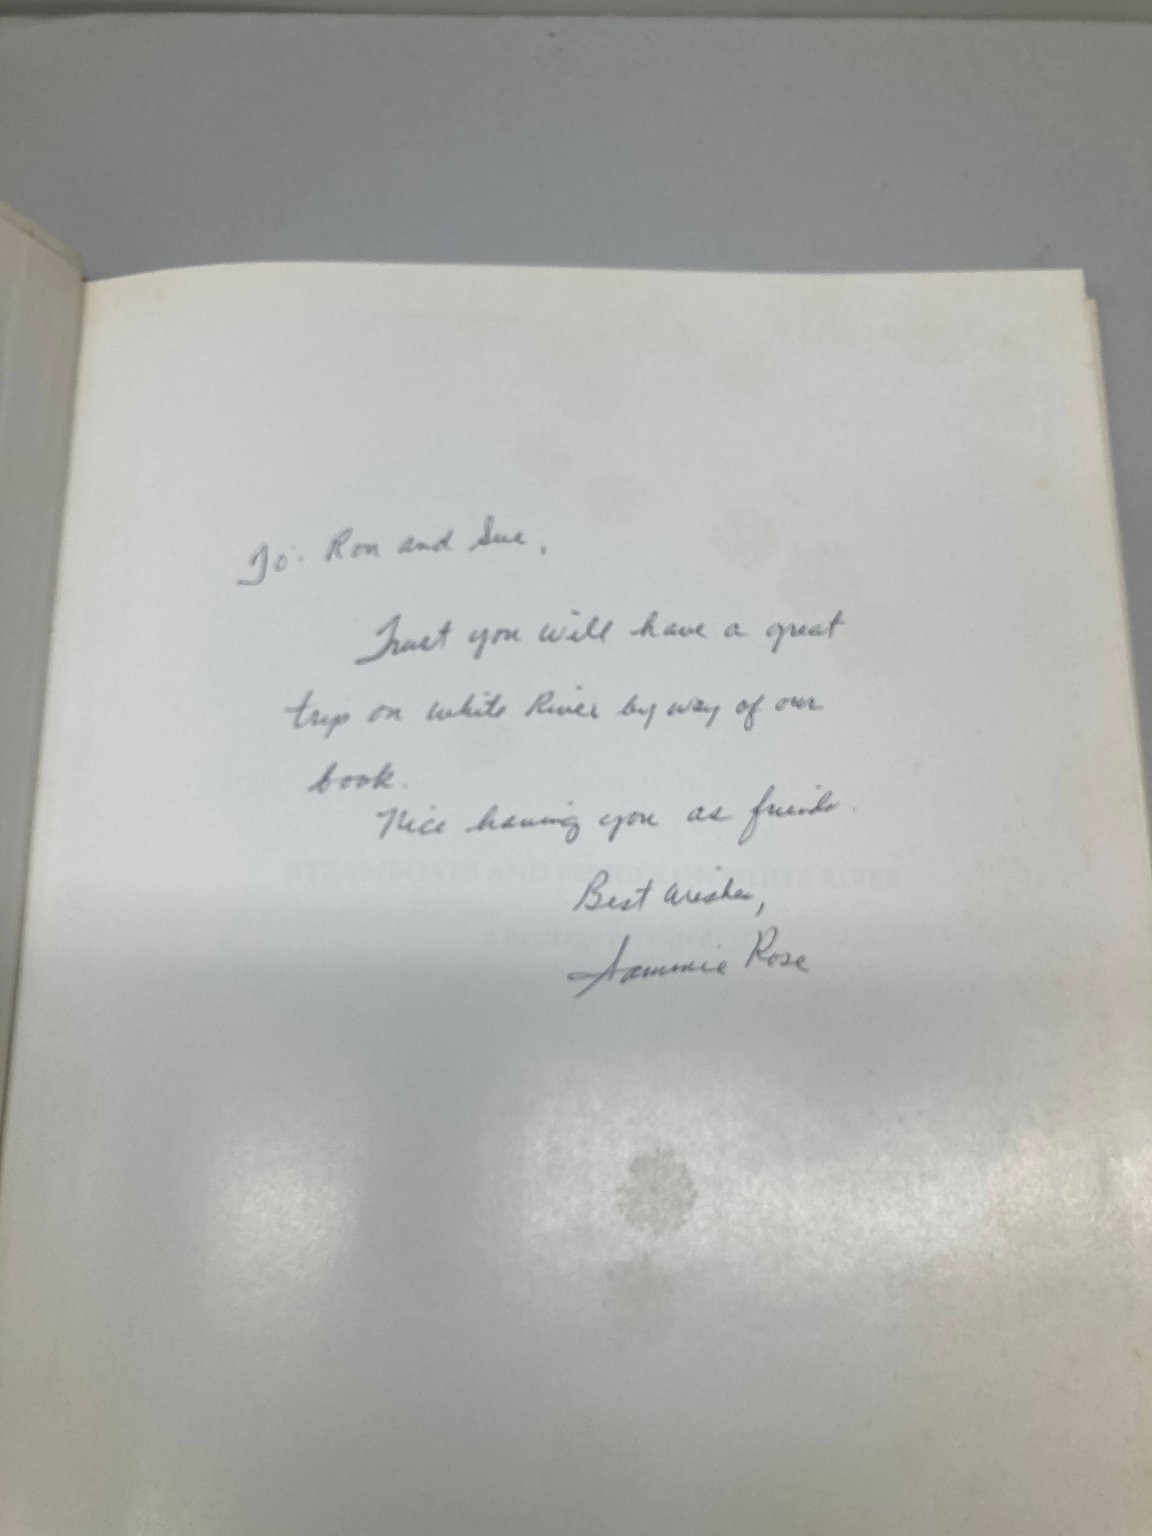 To: Ron and Sue,
Trust you will have a great
trip on White River by way of our
book.
Nice having you as friends.
Best wishes,
Sammie Rose
STEAMBOATS AND FERRIES ON WHITE RIVER